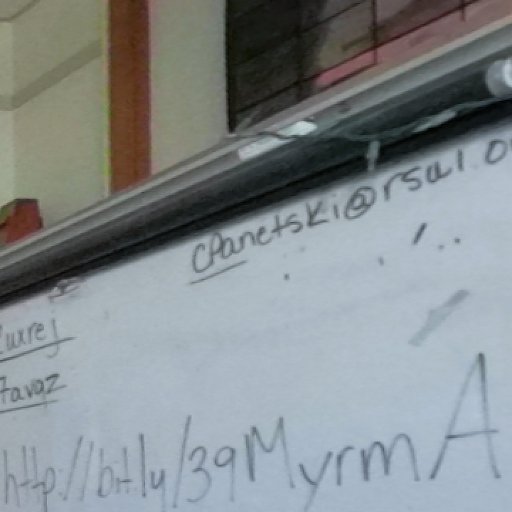 cPanetski@rsu1.o
7avqz
http://bit.ly/39MyrmA